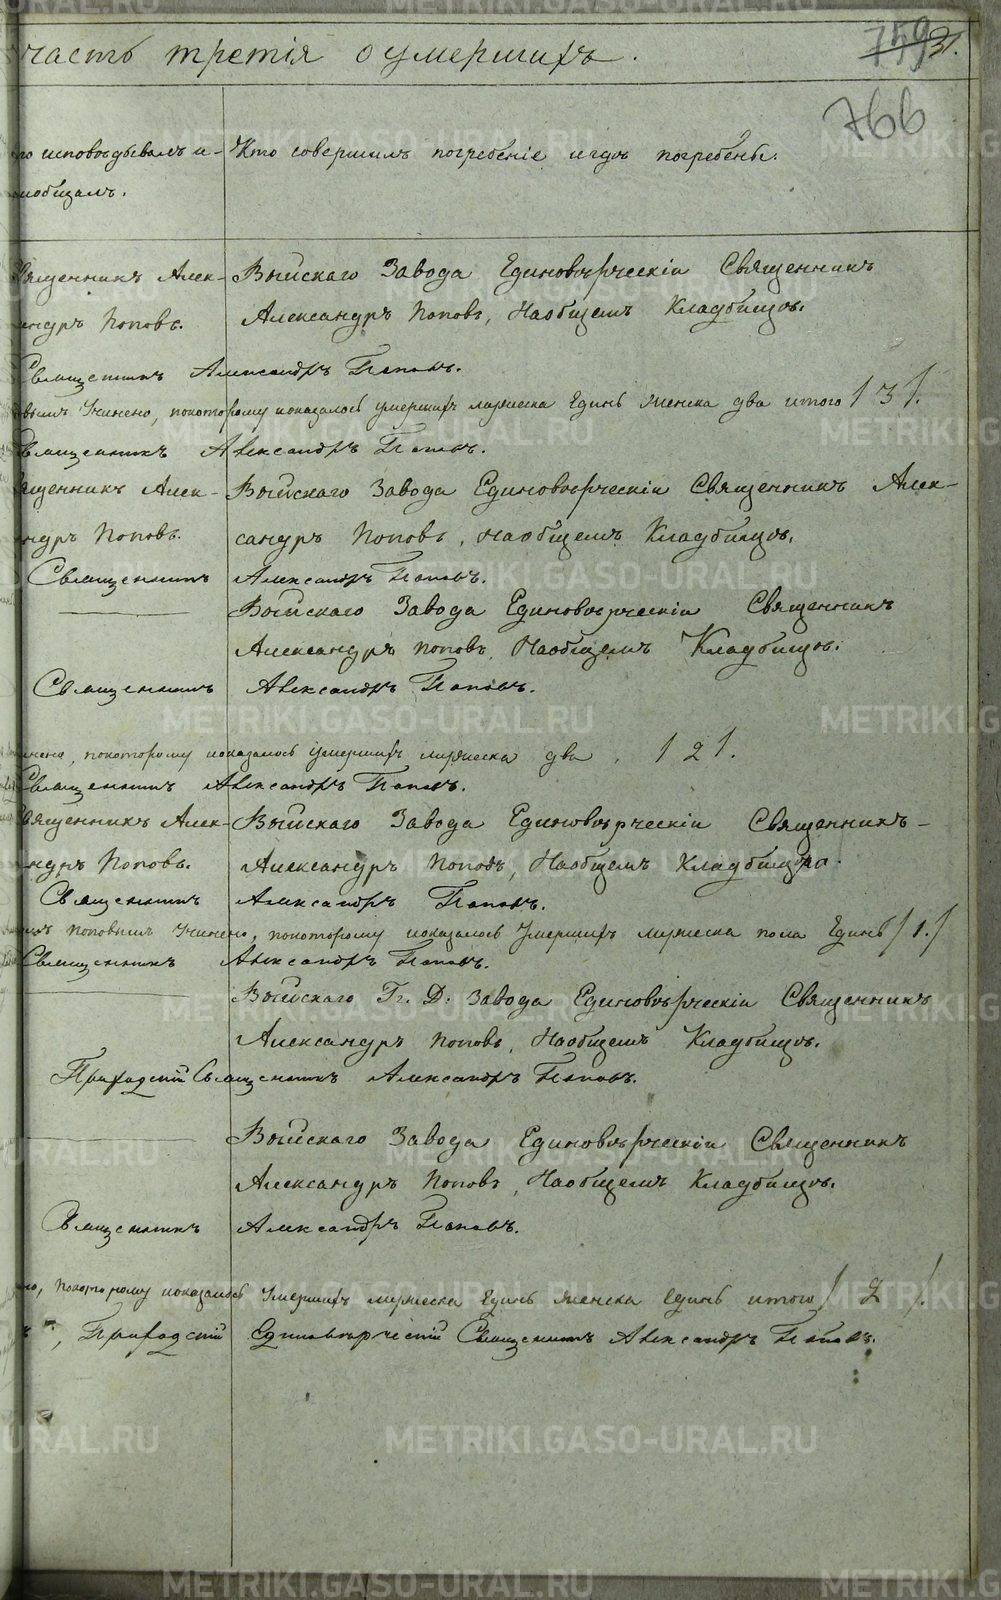 часть третія о умершихъ.
759
31.
766
исповѣдывалъ и
Кто совершилъ погребеніе и гдѣ погребены.
общалъ.
вященникъ Алек-
Выйскаго Завода Единовѣрческій Священникъ
ндръ Поповъ.
Александръ Поповъ, На общемъ Кладбищѣ.
Священникъ Александръ Поповъ.
вымъ Учинено, по которому показалось умершихъ мужеска Единъ женска два итого / 3 /.
Священникъ Александръ Поповъ.
ященникъ Алек-
Выйскаго Завода Единовѣрческій Священникъ Алек-
ндръ Поповъ.
сандръ Поповъ, На общемъ Кладбищѣ.
Священникъ Александръ Поповъ.
Выйскаго Завода Единовѣрческій Священникъ
Александръ Поповъ, На общемъ Кладбищѣ.
Священникъ Александръ Поповъ.
инено, по которому показалось умершихъ мужеска два / 2 /.
Священникъ Александръ Поповъ.
вященникъ Алек-
Выйскаго Завода Единовѣрческій Священникъ
ндръ Поповъ.
Александръ Поповъ, На общемъ Кладбищѣ.
Священникъ Александръ Поповъ.
Поповымъ Учинено, по которому показалось Умершихъ мужеска пола Единъ / 1. /
Священникъ Александръ Поповъ.
Выйскаго Г. Д. Завода Единовѣрческій Священникъ
Александръ Поповъ, На общемъ Кладбищѣ.
Приходскій Священникъ Александръ Поповъ.
Выйскаго Завода Единовѣрческій Священникъ
Александръ Поповъ, На общемъ Кладбищѣ.
Священникъ Александръ Поповъ.
но, по которому показалось Умершихъ мужеска Единъ женска Единъ итого / 2 /.
Приходскій Единовѣрческій Священникъ Александръ Поповъ.
METRIKI.GASO-URAL.RU